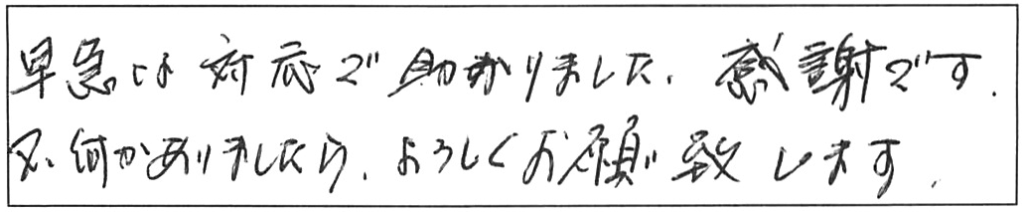 早急な対応で助かりました。感謝です。
又、何かありましたら、よろしくお願い致します。